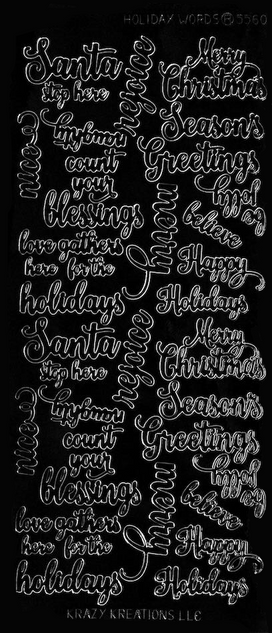 HOLIDAY WORDS® 5560
Santa
stop here
rejoice
Merry
Christmas
Season's
Greetings
nice
naughty
count
your
blessings
merry
jolly
believe
love gathers
here for the
holidays
Happy
Holidays
Santa
stop here
rejoice
Merry
Christmas
Season's
Greetings
nice
naughty
count
your
blessings
merry
jolly
believe
love gathers
here for the
holidays
Happy
Holidays
KRAZY KREATIONS LLC